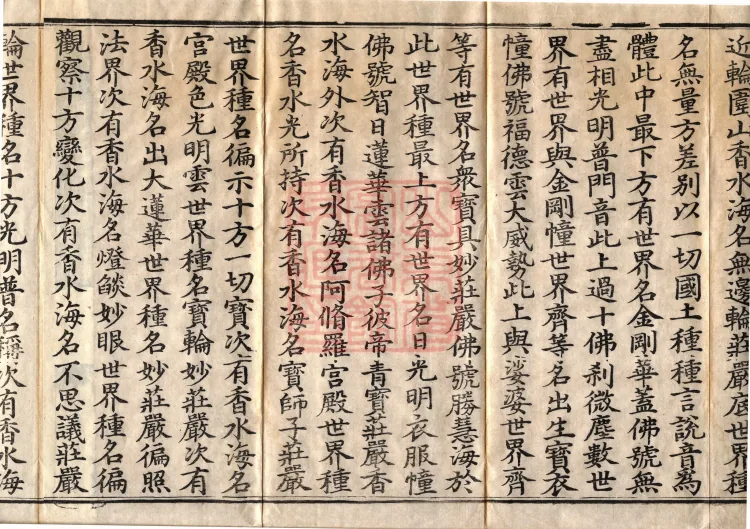 近輪圍山香水海名無邊輪莊嚴底世界種
名無量方差別以一切國土種種言說音為
體此中最下方有世界名金剛華蓋佛號無
盡相光明普門音此上過十佛剎微塵數世
界有世界與金剛幢世界齊等名出生寶衣
幢佛號福德雲大威勢此上與娑婆世界齊
等有世界名衆寶具妙莊嚴佛號勝慧海於
此世界種最上方有世界名日光明衣服幢
佛號智日蓮華雲諸佛子彼帝青寶莊嚴香
水海外次有香水海名阿脩羅宮殿世界種
名香水光所持次有香水海名寶師子莊嚴
世界種名徧示十方一切寶次有香水海名
宮殿色光明雲世界種名寶輪妙莊嚴次有
香水海名出大蓮華世界種名妙莊嚴徧照
法界次有香水海名燈燄妙眼世界種名徧
觀察十方變化次有香水海名不思議莊嚴
輪世界種名十方光明普名稱次有香水海